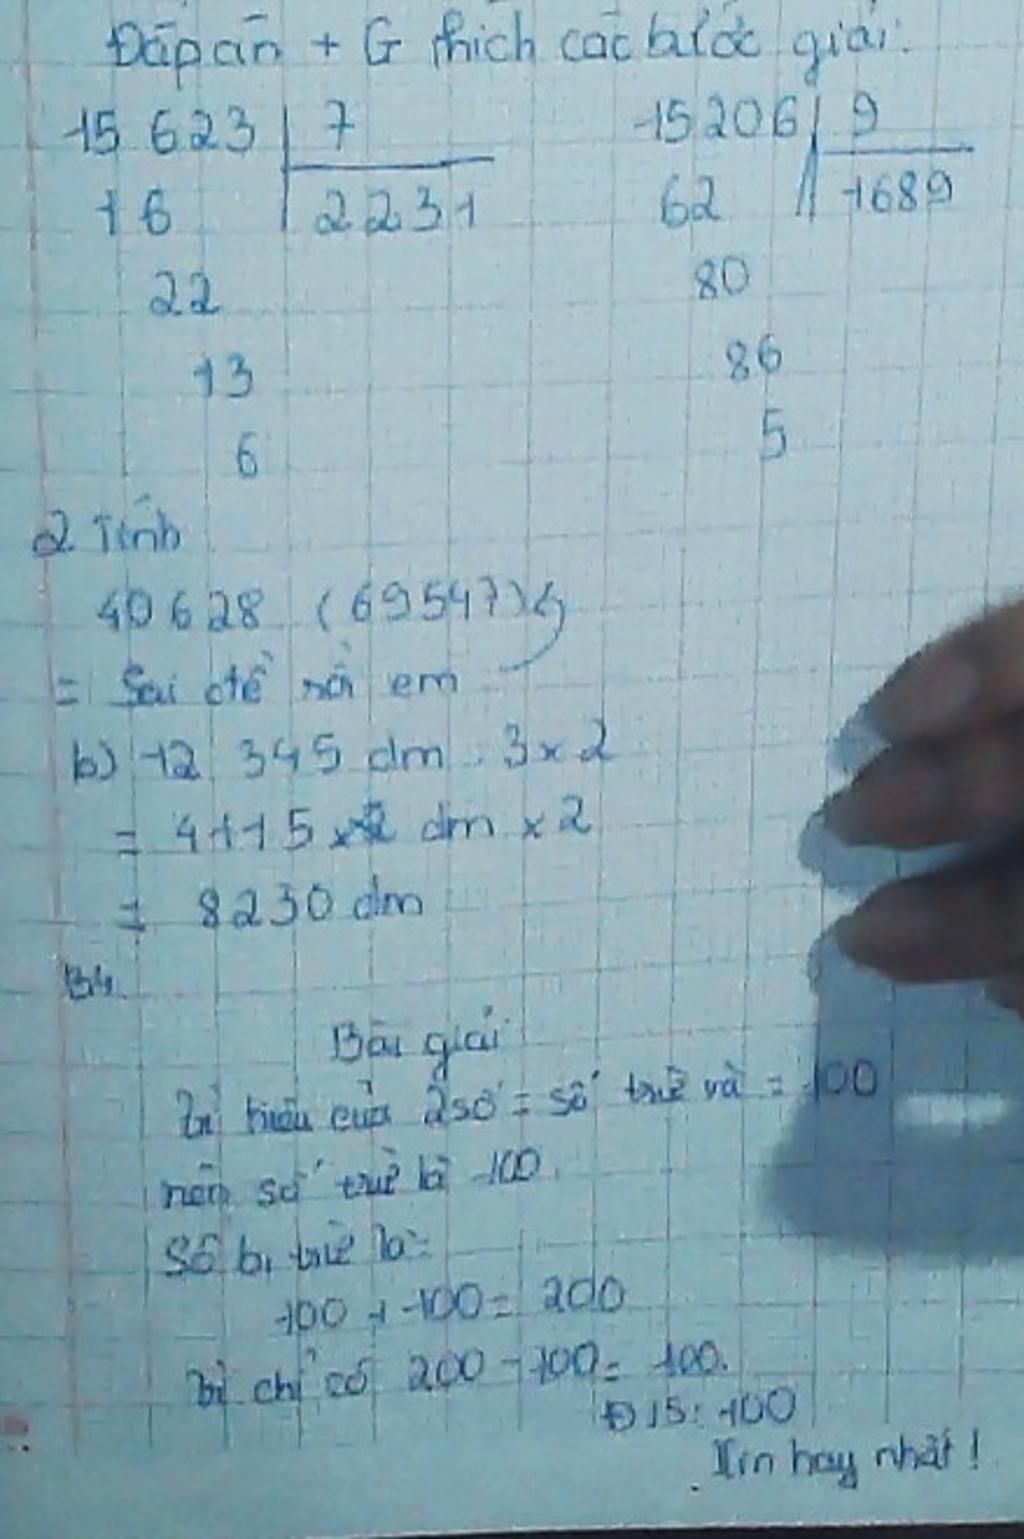 Đáp án + G thích các bước giải:
15 623 | 7
16 | 2231
22
13
6
15206 | 9
62 | 1689
80
86
5
2 Tính
40628 (69547)
= Sai đề rồi em
b) 12 345 dm : 3 x 2
= 4115 dm x 2
= 8230 dm
B4.
Bài giải
Vì hiệu của 2 số = số trừ và = 100
nên số trừ là 100.
Số bị trừ là:
100 + 100 = 200
Vì chỉ có 200 - 100 = 100.
Đ/S: 100
Xin hay nhất!